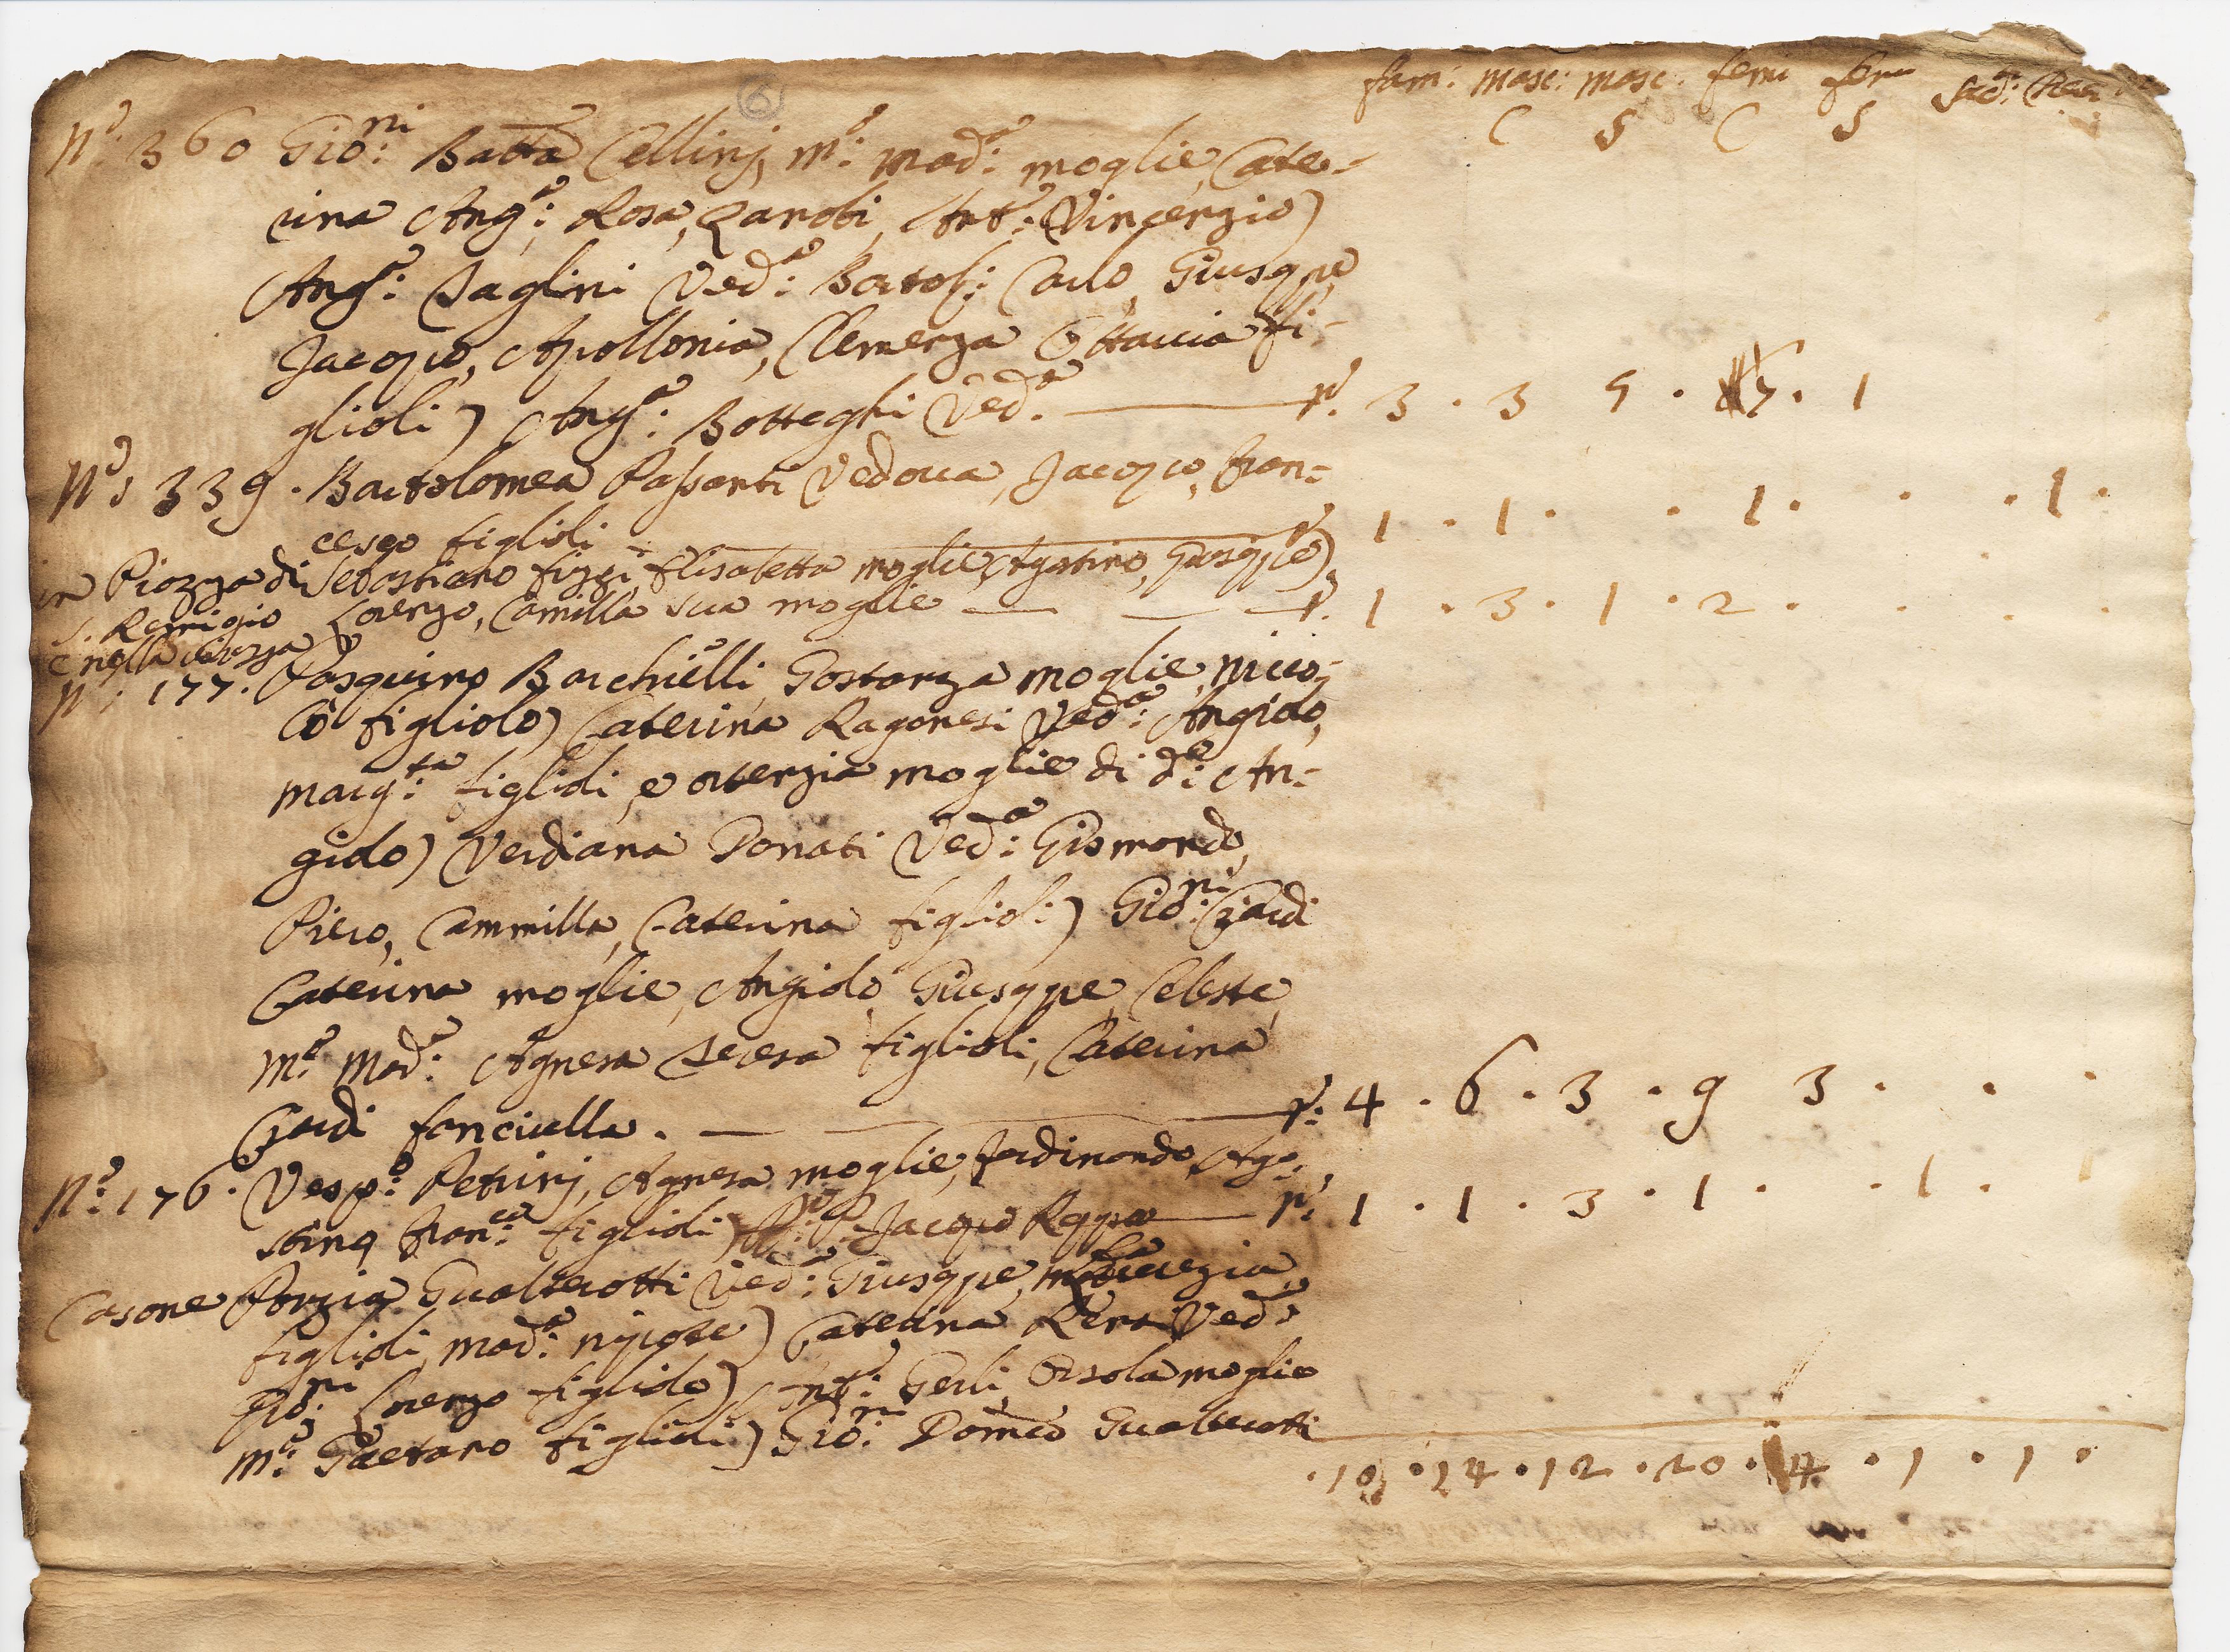 6
fam: masc: masc: fem fem Sac:
C S C S
N.o 360 Gio:ni Batta Cellinj, M.a Mad.a moglie, Cate-
rina Ang.a, Rosa, Zanobi, Ant.o Vincenzio)
Ang.a: Baglini Ved.a: Bartol: Carlo, Giuseppe,
Jacopo, Apollonia, Clemenza Ottavia fi-
glioli) Ang.a: Botteghi Ved.a — n.o 3 . 3 5 . 7 . 1
N.o 339. Bartolomea Passanti Vedova, Jacopo, Fran-
cesco figlioli — n.o 1 . 1 . . 1 . . . 1 .
in Piazza di Sebastiano Elisabetta moglie, Agostino, Giuseppe)
S. Remigio Lorenzo, Camilla sua moglie — n.o 1 . 3 . 1 . 2 . . . .
e nella
N.o 177. Pasquino Barchielli Gostanza moglie, Nicco-
lò figliolo) Caterina Ragonesi Ved.a: Angiolo,
Marg:ta figlioli, e Ortenzia moglie di d.o: An-
giolo) Verdiana Donati Ved.a: Gismondo,
Piero, Cammilla, Caterina figlioli) Gio:ni Ciardi
Caterina moglie, Angiolo, Giuseppe, Celeste,
M.a Mad.a: Agnesa Teresa figlioli, Caterina
Ciardi fanciulla. — n.o: 4 . 6 . 3 . 9 3 . . .
N.o: 176. Vesp.o: Petrinj, Agnesa moglie, Ferdinando, Ago-
stino, Fran:co figlioli) Jacopo — n.o: 1 . 1 . 3 . 1 . . 1 .
Casone Porzia Gualterotti Ved.a: Giuseppe,
figlioli, Mad.a: nipote) Caterina Ved.a
Gio:ni Lorenzo figliolo) Ant.o: Gerli, Orsola moglie
M.a: Gaetano figlioli) Gio:ni Dom.co Gualterotti
. 10 . 14 . 12 . 20 . 4 . 1 . 1 .